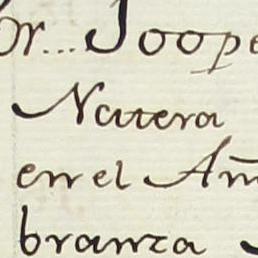 or... Joope
Natera
en el Añ
branza